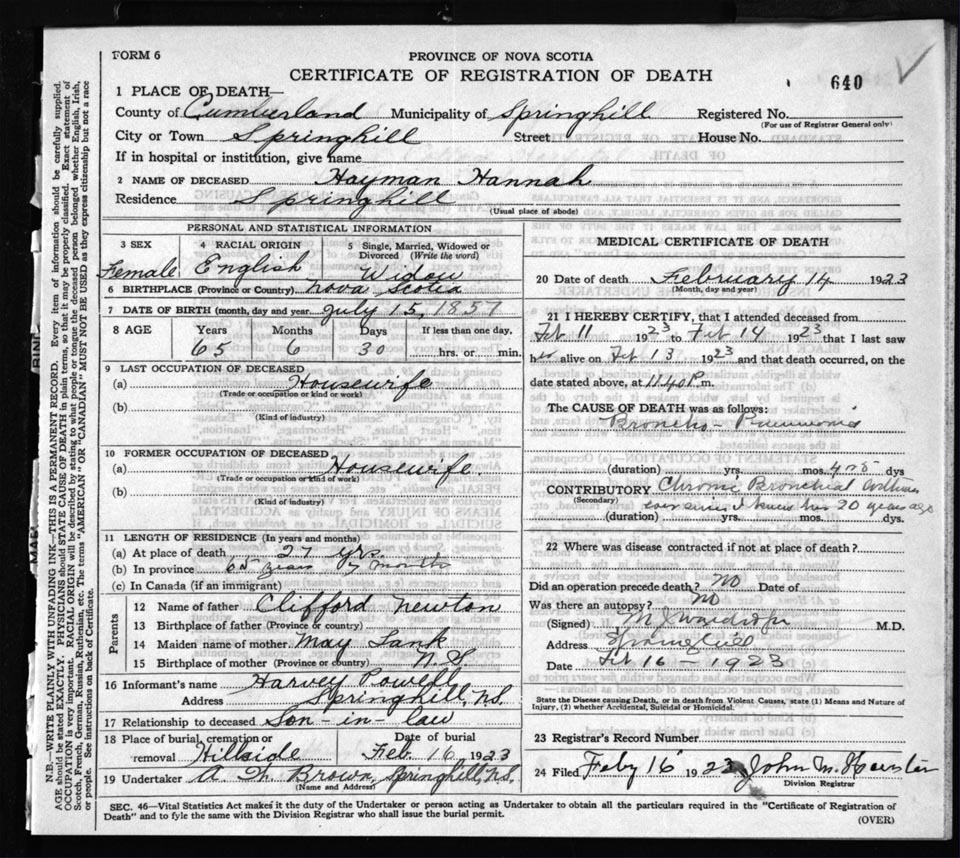 FORM 6
PROVINCE OF NOVA SCOTIA
CERTIFICATE OF REGISTRATION OF DEATH
640
1 PLACE OF DEATH—
County of Cumberland Municipality of Springhill Registered No.
(For use of Registrar General only)
City or Town Springhill Street House No.
If in hospital or institution, give name
2 NAME OF DECEASED Hayman Hannah
Residence Springhill
(Usual place of abode)
PERSONAL AND STATISTICAL INFORMATION
3 SEX 4 RACIAL ORIGIN 5 Single, Married, Widowed or Divorced (Write the word)
Female English Widow
6 BIRTHPLACE (Province or Country) Nova Scotia
7 DATE OF BIRTH (month, day and year) July 15, 1857
8 AGE Years Months Days If less than one day,
65 6 30 hrs. or min.
9 LAST OCCUPATION OF DECEASED
(a) Housewife
(Trade or occupation or kind or work)
(b)
(Kind of industry)
10 FORMER OCCUPATION OF DECEASED
(a) Housewife
(Trade or occupation or kind or work)
(b)
(Kind of industry)
11 LENGTH OF RESIDENCE (In years and months)
(a) At place of death 27 yrs.
(b) In province 65 years 7 months
(c) In Canada (if an immigrant)
Parents
12 Name of father Clifford Newton
13 Birthplace of father (Province or country)
14 Maiden name of mother May Lank
15 Birthplace of mother (Province or country) N.S.
16 Informant's name Harvey Powell
Address Springhill, N.S.
17 Relationship to deceased Son-in-law
18 Place of burial, cremation or removal Hillside Date of burial Feb. 16 1923
19 Undertaker A. Brown, Springhill, N.S.
(Name and Address)
MEDICAL CERTIFICATE OF DEATH
20 Date of death February 14 1923
(Month, day and year)
21 I HEREBY CERTIFY, that I attended deceased from
Feb 11 1923 to Feb 14 1923 that I last saw
her alive on Feb 13 1923 and that death occurred, on
date stated above, at 11.40 P.m.
The CAUSE OF DEATH was as follows:
Broncho-Pneumonia
(duration) yrs. mos. 4 or 5 dys
CONTRIBUTORY Chronic Bronchial Asthma
(Secondary) ever since I knew her 20 years ago
(duration) yrs. mos. dys.
22 Where was disease contracted if not at place of death?
Did an operation precede death? No
Was there an autopsy? No
(Signed) M.D.
Address Springhill
Date Feb 16 - 1923
State the Disease causing Death, or in death from Violent Causes, state (1) Means and Nature of
Injury, (2) whether Accidental, Suicidal or Homicidal.
23 Registrar's Record Number
24 Filed Feby 16 1923 John M.
Division Registrar
SEC. 46—Vital Statistics Act makes it the duty of the Undertaker or person acting as Undertaker to obtain all the particulars required in the "Certificate of Registration of
Death" and to fyle the same with the Division Registrar who shall issue the burial permit.
(OVER)
N.B.—WRITE PLAINLY WITH UNFADING INK—THIS IS A PERMANENT RECORD. Every item of information should be carefully supplied.
AGE should be stated EXACTLY. PHYSICIANS should STATE CAUSE OF DEATH in plain terms, so that it may be properly classified. Exact statement of
OCCUPATION is very important. RACIAL ORIGIN will be described by stating to what people or tongue the deceased person belonged whether English, Irish,
Scotch, French, German, Russian, Ruthenian, etc. The terms "AMERICAN" or "CANADIAN" MUST NOT BE USED as they express citizenship but not a race
or people. See instructions on back of Certificate.